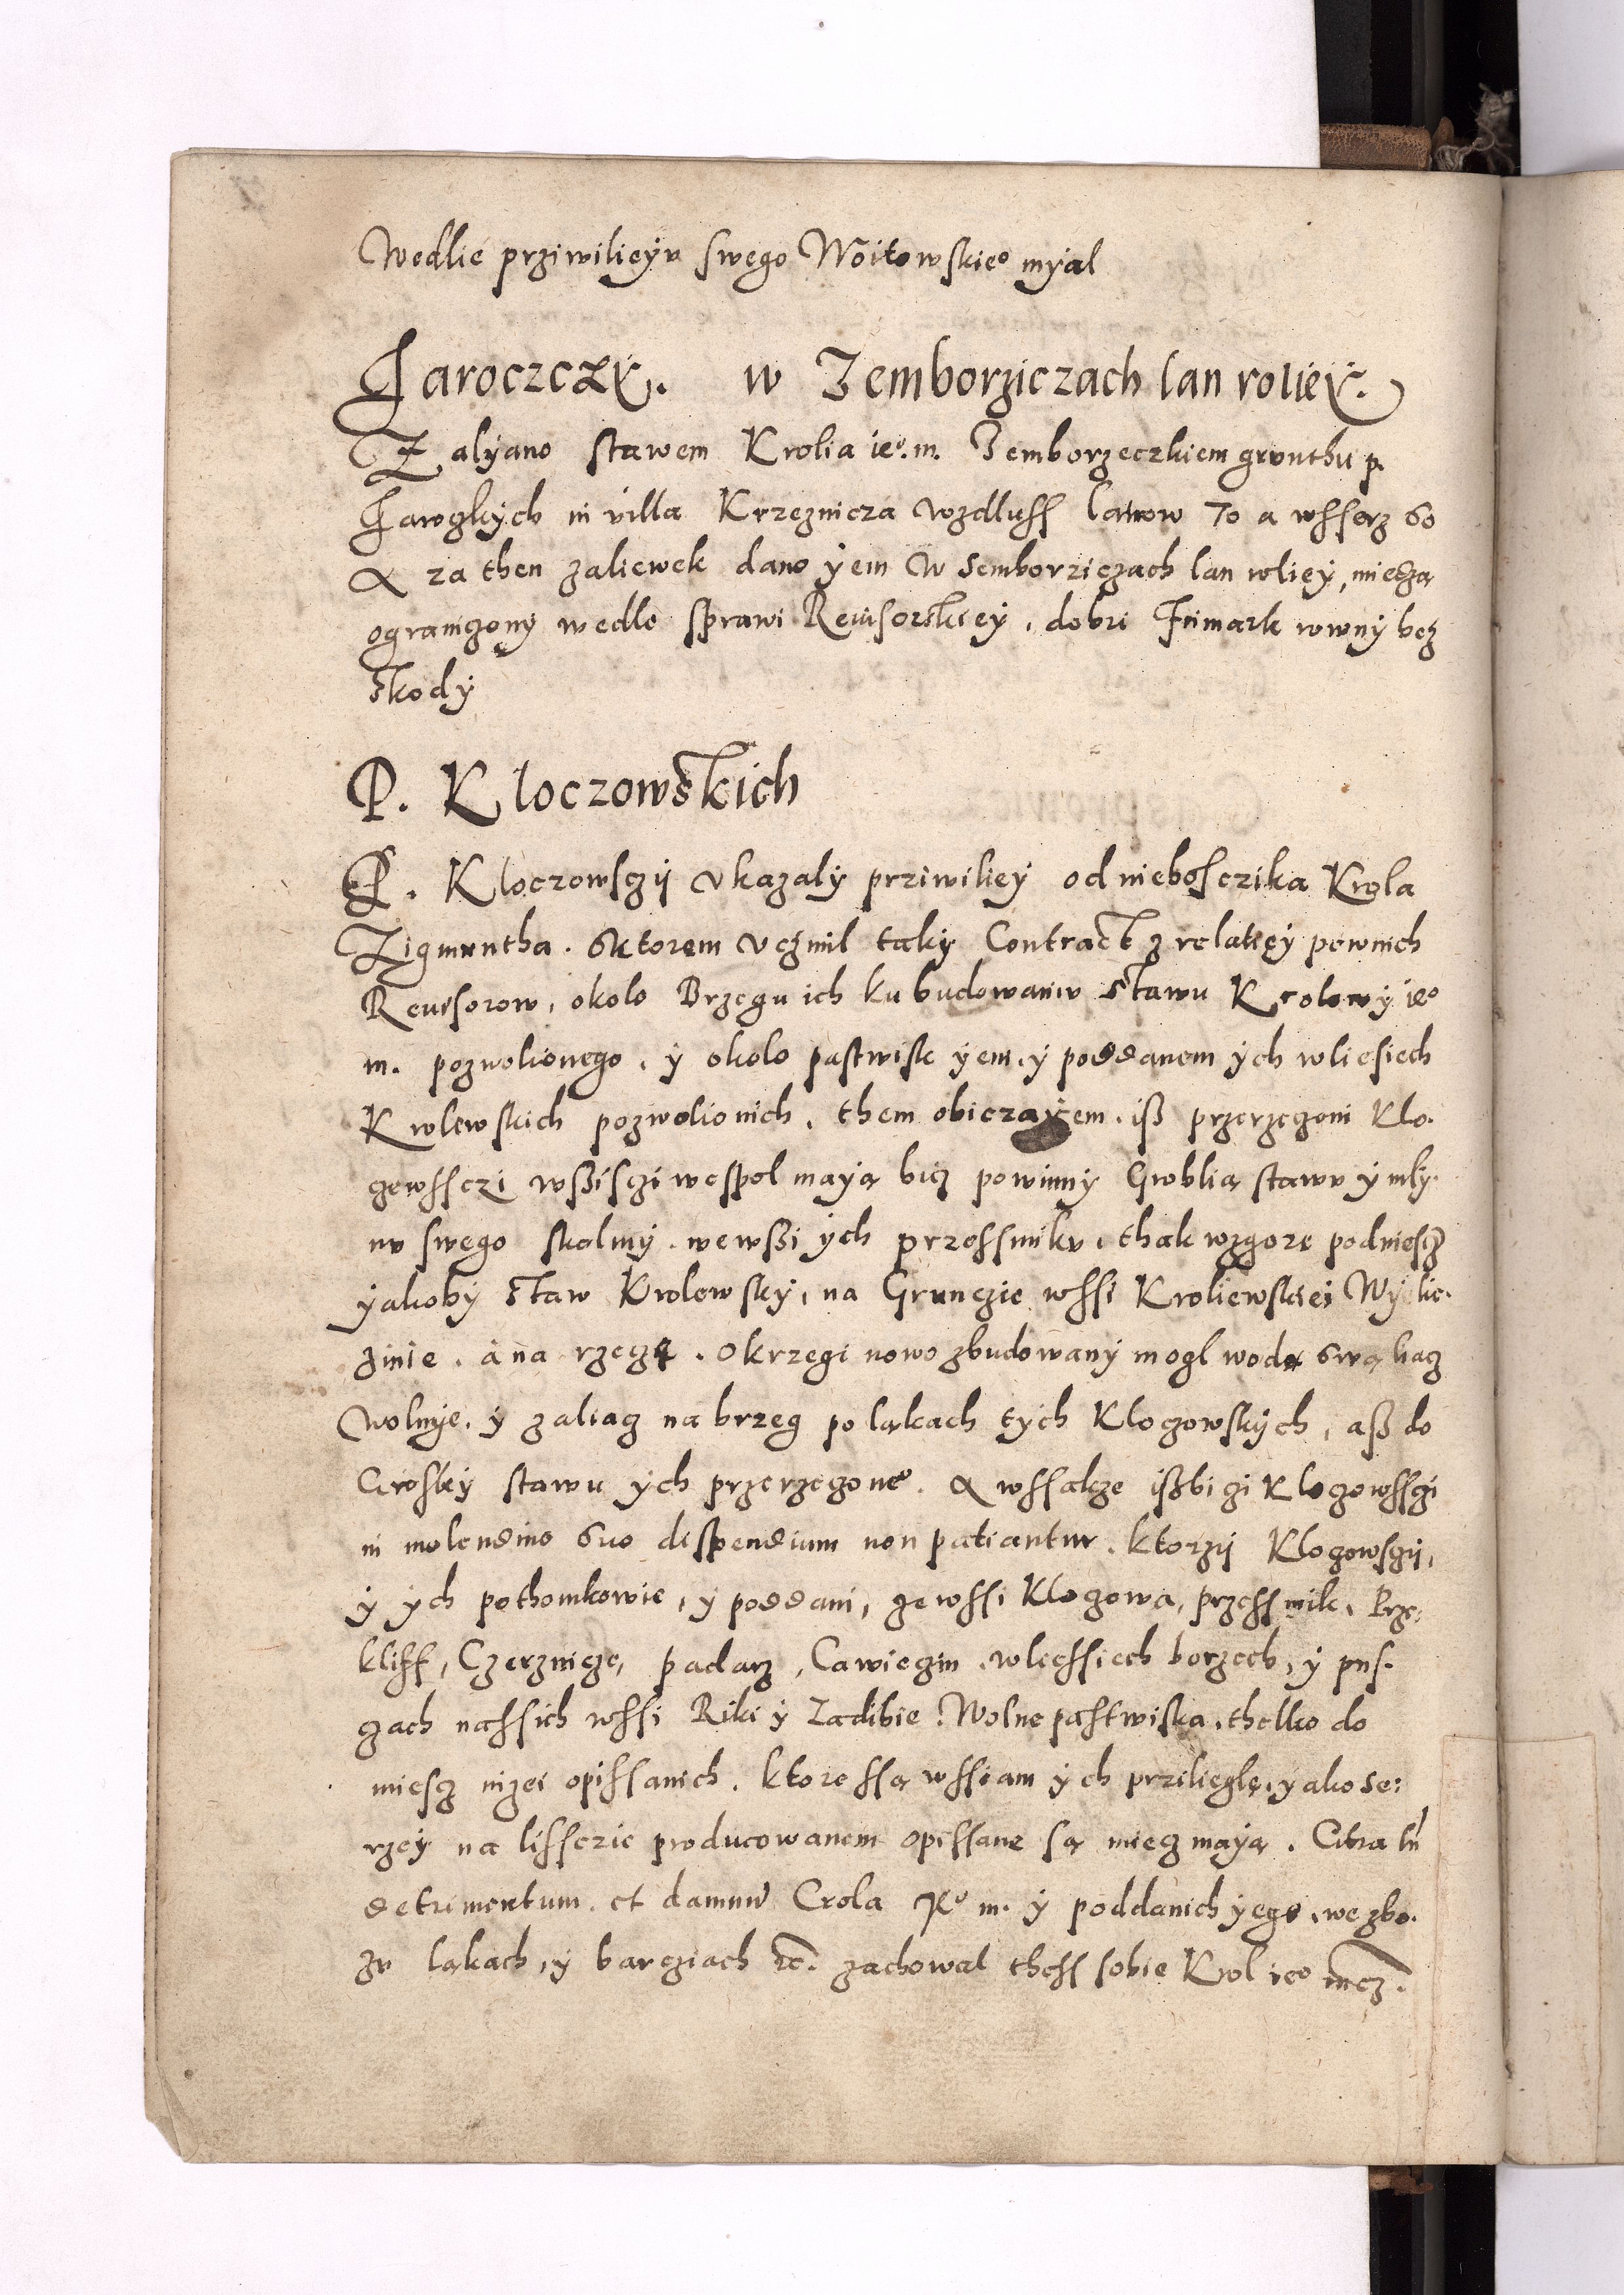 Wedlie prziwilieyu swego Woitowskie° myal
Jaroczczy. w Zemborziczach lan roliey.
Zalyano stawem Krolia ie°. m. Zemborzeczkiem grunthu p.
Jaroczkych in villa Krzeznicza wzdluss lanow 70 a wsserz 60
A za then zaliewek dano yem w Semborziczach lan roliey, miedzą
ograniczony wedle sprawi Rewisorskiey, dobri Frimark rowny bez
skody
P. Kloczowskich
P. Kloczowsczy ukazaly prziwiliey od nieboszczika Krola
Zigmuntha. Sktorem uczinil taky Contract z relatiey pewnich
Rewisorow, okolo Brzegu ich ku budowaniu stawu Krolowy ie°
m. pozwolionego, y okolo pastwisk yem, y poddanem ych w liesiech
Krolewskich pozwolionich, them obiczayem, iß przerzeczoni Klo.
czowssczi wßisczi wespol mayą bicz powinny Groblią stawu y mly.
nu swego skolmy, we wßi ych przessmiku, thak wzgore podniescz
yakoby staw Krolewsky, na Grunczie wssi Kroliewskiei Wylie.
zinie, a na rzeczę. Okrzegi nowo zbudowany mogl wodą swą liacz
wolnye, y zaliacz na brzeg po ląkach tych Kloczowskych, aß do
Groblÿ stawu ych przerzeczone°. A wssakze ißbi czi Kloczowssczi
in molendino suo dispendium non patiantur. ktorzy Kloczowsczy,
y ych pothomkowie, y poddani, ze wssi Kloczowa, Przessmik, Brze,
kliss, Czerznicze, padarz, Cawieczin, w lessiech borzech, y pus.
czach nassich wssi Riki y Zadibie. Wolne pastwiska, thelko do
miescz nizei opissanich. ktore ssą wssiam ych przilieglę, yako se:
rzey na lissczie producowanem opissane są miecz mayą. Citra tn
detrimentum. et damnum Crola J° m. y poddanich yego, we zbo.
zu ląkach, y barcziach etc. zachowal thess sobie Krol ie° mcz.